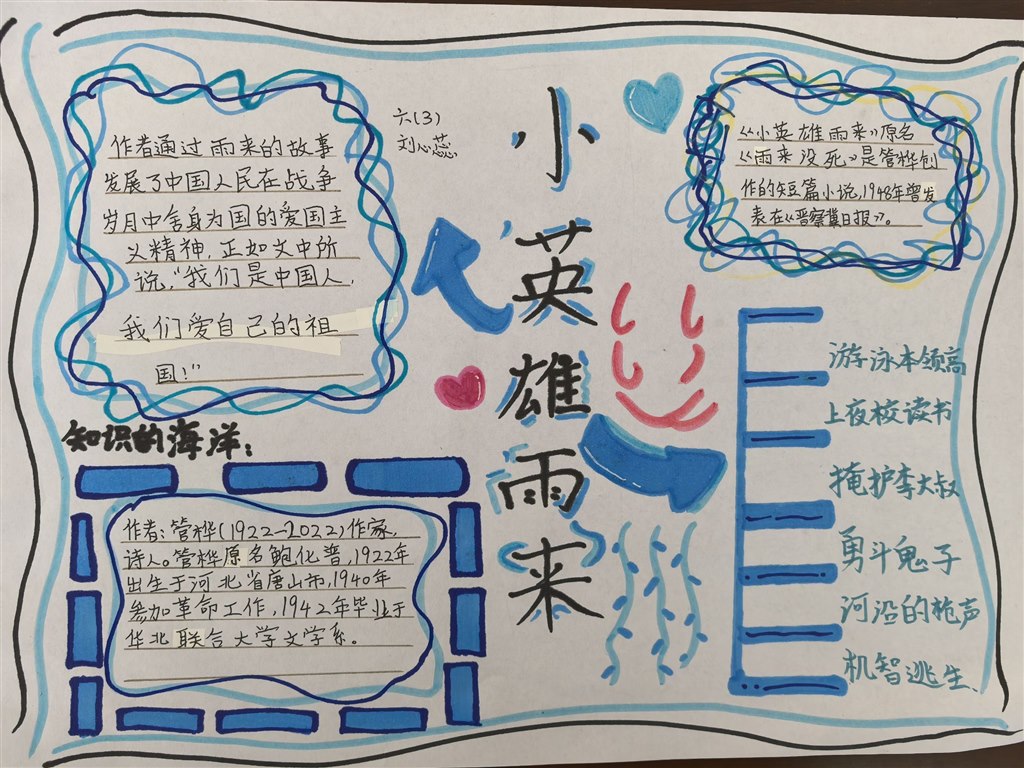 作者通过雨来的故事
发展了中国人民在战争
岁月中舍身为国的爱国主
义精神,正如文中所
说,“我们是中国人,
我们爱自己的祖
国!”
六(3)
刘心蕊
小英雄雨来
《小英雄雨来》原名
《雨来没死》是管桦创
作的短篇小说,1948年曾发
表在《晋察冀日报》。
游泳本领高
上夜校读书
掩护李大叔
勇斗鬼子
河沿的枪声
机智逃生
知识的海洋:
作者:管桦(1922-2022)作家,
诗人。管桦原名鲍化普,1922年
出生于河北省唐山市,1940年
参加革命工作,1942年毕业于
华北联合大学文学系。